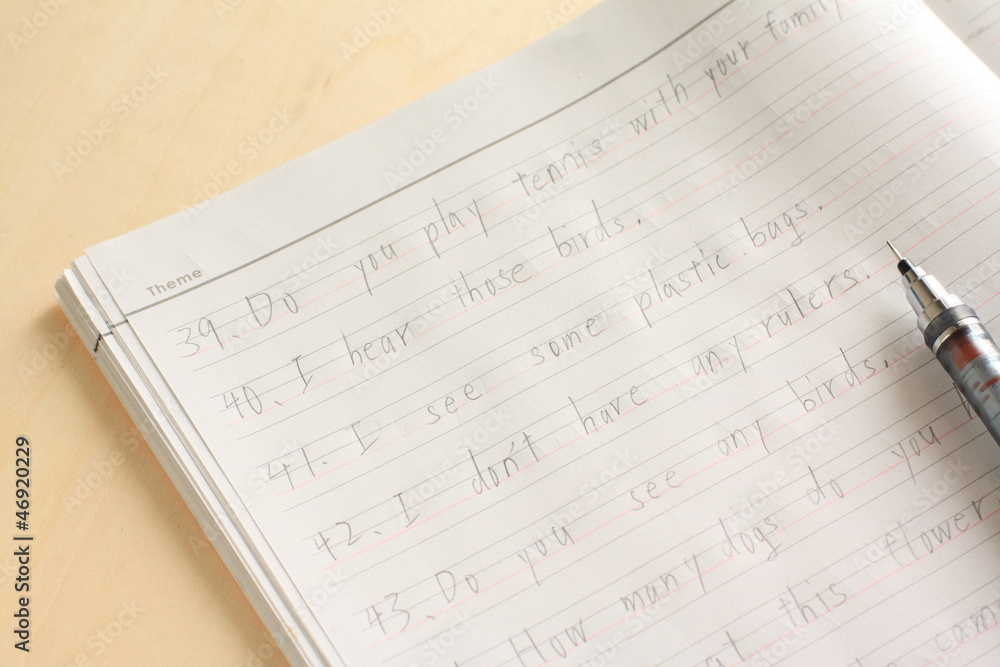 Theme
39. Do you play tennis with your family
40. I hear those birds.
41. I see some plastic bags.
42. I don't have any rulers.
43. Do you see any birds.
How many dogs do you
this flower
Adobe Stock | #46920229